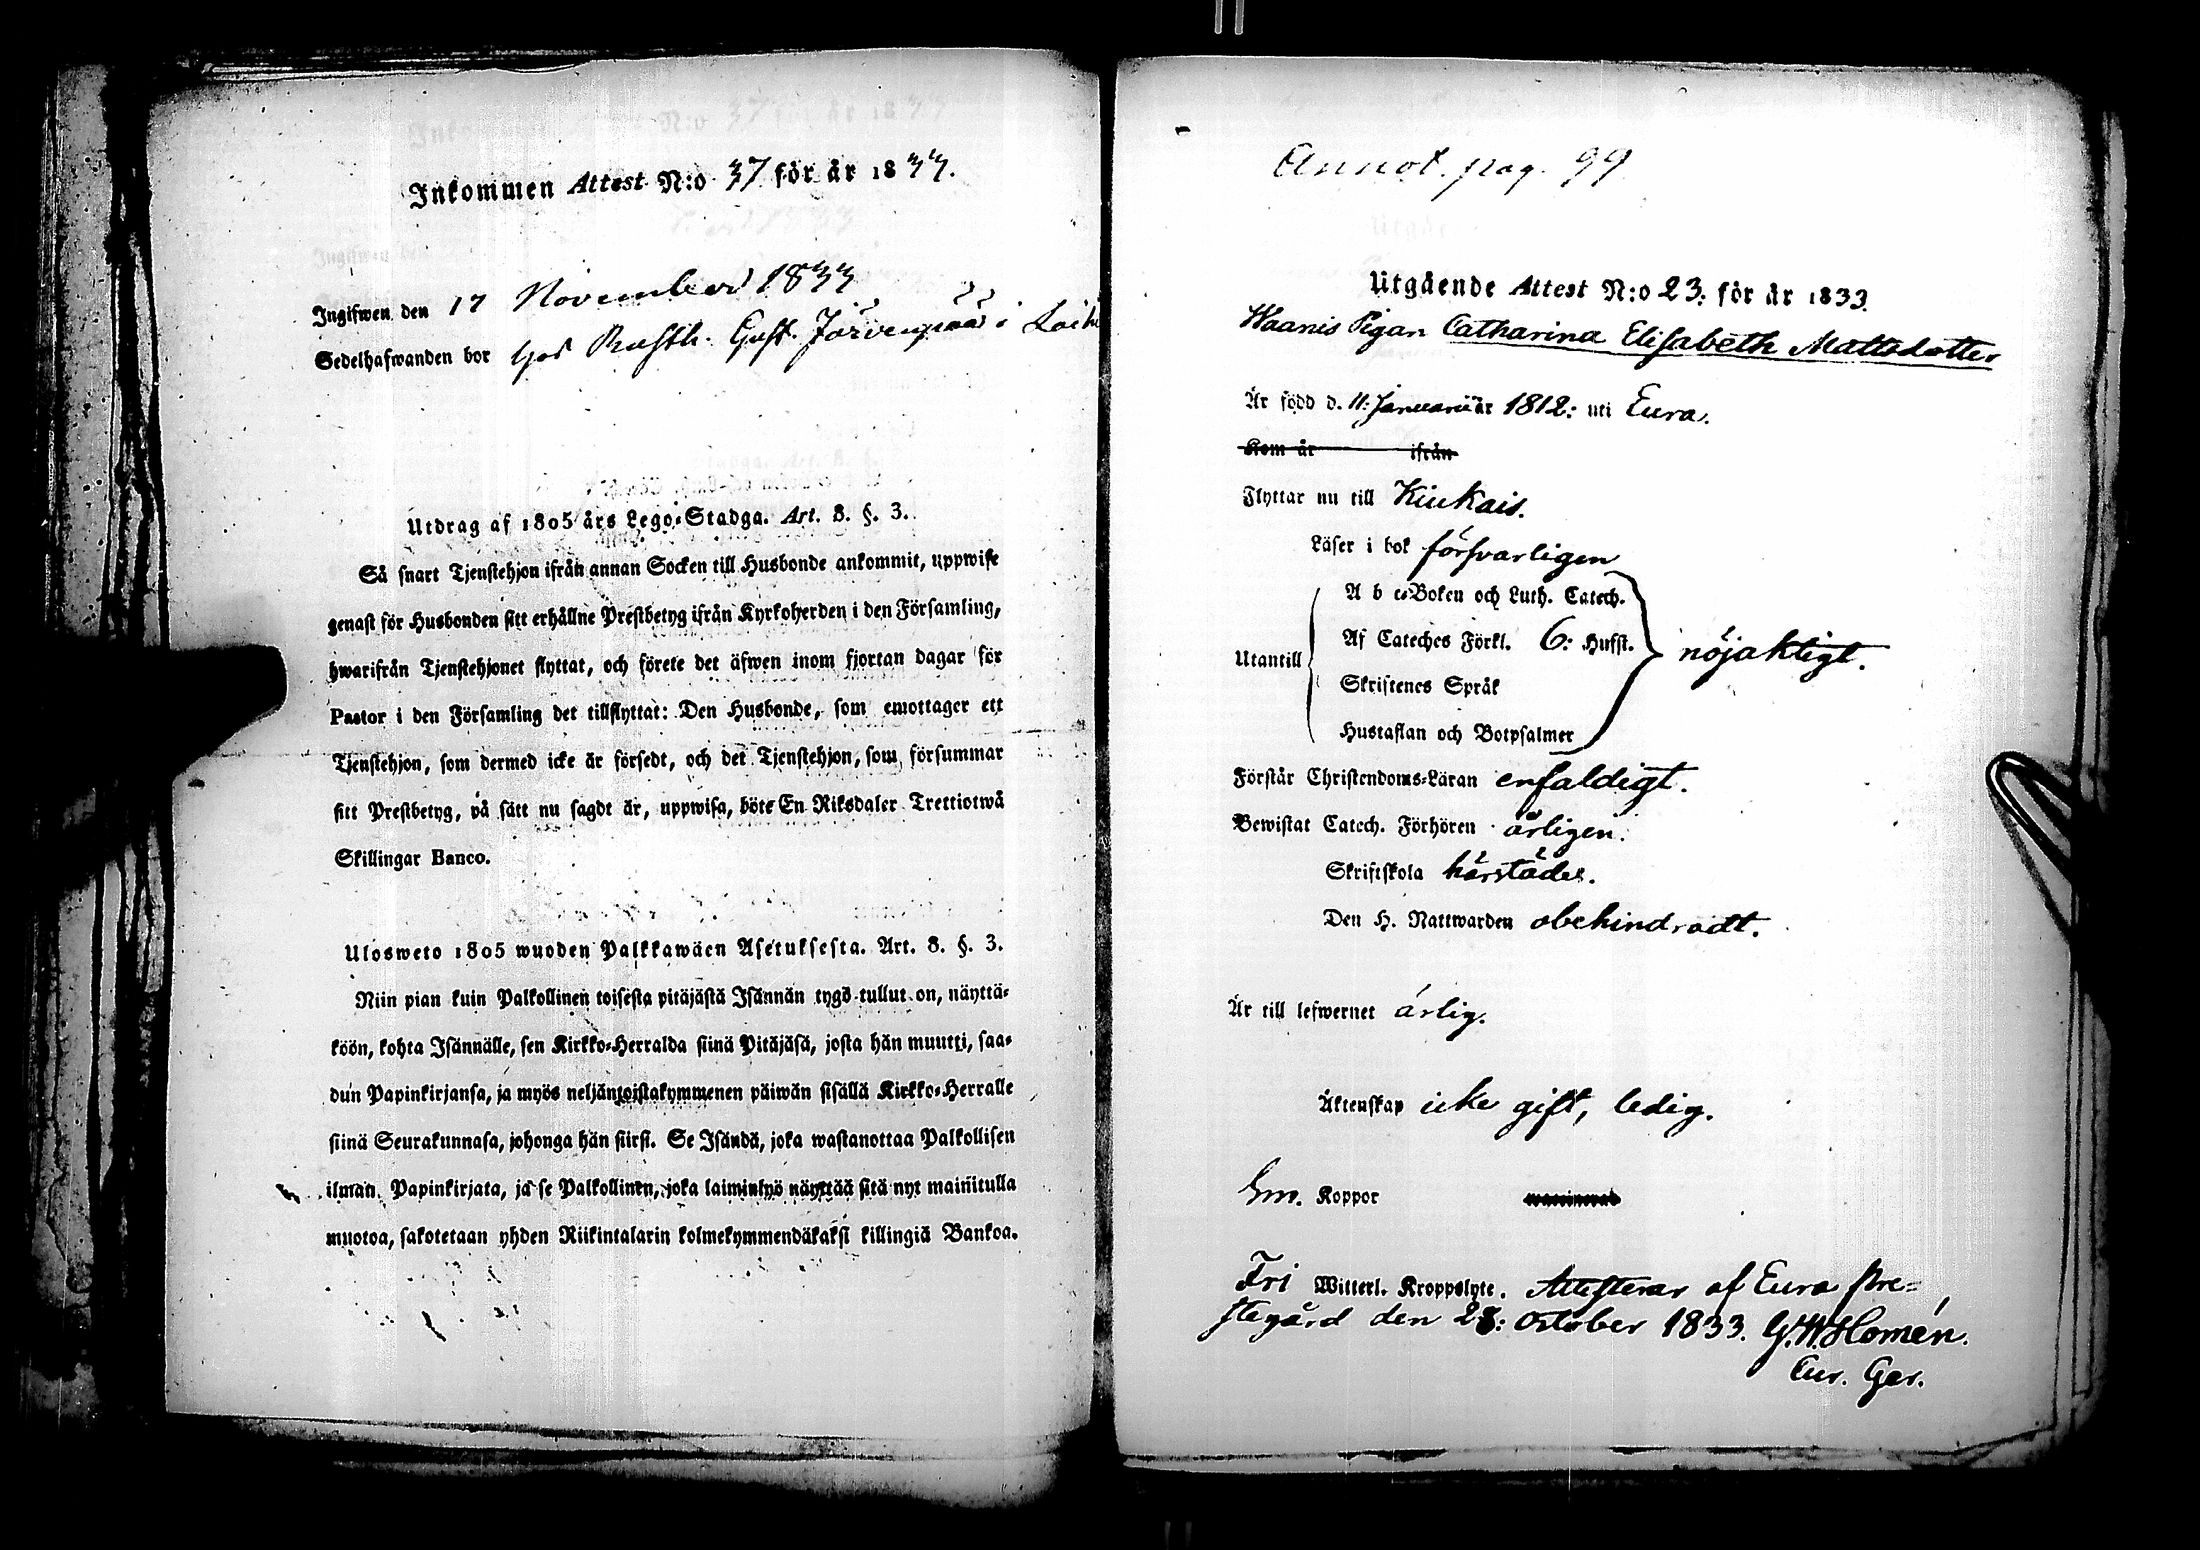 Inkommen Attest N:o 37 för år 1833.
Ingifwen den 17 November 1833
Sedelhafwanden bor hos Rusth. Gust. Järvenpää i
Utdrag af 1805 års Lego-Stadga. Art. 8. §. 3.
Så snart Tjenstehjon ifrån annan Socken till Husbonde ankommit, uppwise
genast för Husbonden sitt erhållne Prestbetyg ifrån Kyrkoherden i den Församling,
hwarifrån Tjenstehjonet flyttat, och förete det äfwen inom fjortan dagar för
Pastor i den Församling det tillflyttat: Den Husbonde, som emottager ett
Tjenstehjon, som dermed icke är försedt, och det Tjenstehjon, som försummar
sitt Prestbetyg, på sätt nu sagdt är, uppwisa, böte En Riksdaler Trettiotwå
Skillingar Banco.
Ulosweto 1805 wuoden Palkkawäen Asetuksesta. Art. 8. §. 3.
Niin pian kuin Palkollinen toisesta pitäjästä Isännän tygö tullut on, näyttä-
köön, kohta Isännälle, sen Kirkko-Herralda siinä Pitäjäsä, josta hän muutti, saa-
dun Papinkirjansa, ja myös neljäntoistakymmenen päiwän sisällä Kirkko-Herralle
siinä Seurakunnasa, johonga hän siirsi. Se Isändä, joka wastanottaa Palkollisen
ilman Papinkirjata, ja se Palkollinen, joka laiminlyö näyttää sitä nyt mainitulla
muotoa, sakotetaan yhden Riikintalarin kolmekymmendäkaksi killingiä Bankoa.
Annot. pag. 99
Utgående Attest N:o 23: för år 1833.
Waanis Pigan Catharina Elisabeth Mattsdotter
Är född d. 11: Januarii år 1812: uti Eura.
Kom år ifrån
Flyttar nu till Kiukais.
Läser i bok försvarligen
A b c-Boken och Luth. Catech.
Af Cateches Förkl. 6: Hufst.
Utantill nöjaktigt.
Skriftenes Språk
Hustaflan och Botpsalmer
Förstår Christendoms-Läran enfaldigt.
Bewistat Catech. Förhören årligen.
Skriftskola härstädes.
Den H. Nattwarden obehindradt.
Är till lefwernet ärlig.
Äktenskap icke gift, ledig.
Koppor
Fri Witterl. Kroppslyte. Attesterar af Eura Pre-
stegård den 28: October 1833. G.W. Homén.